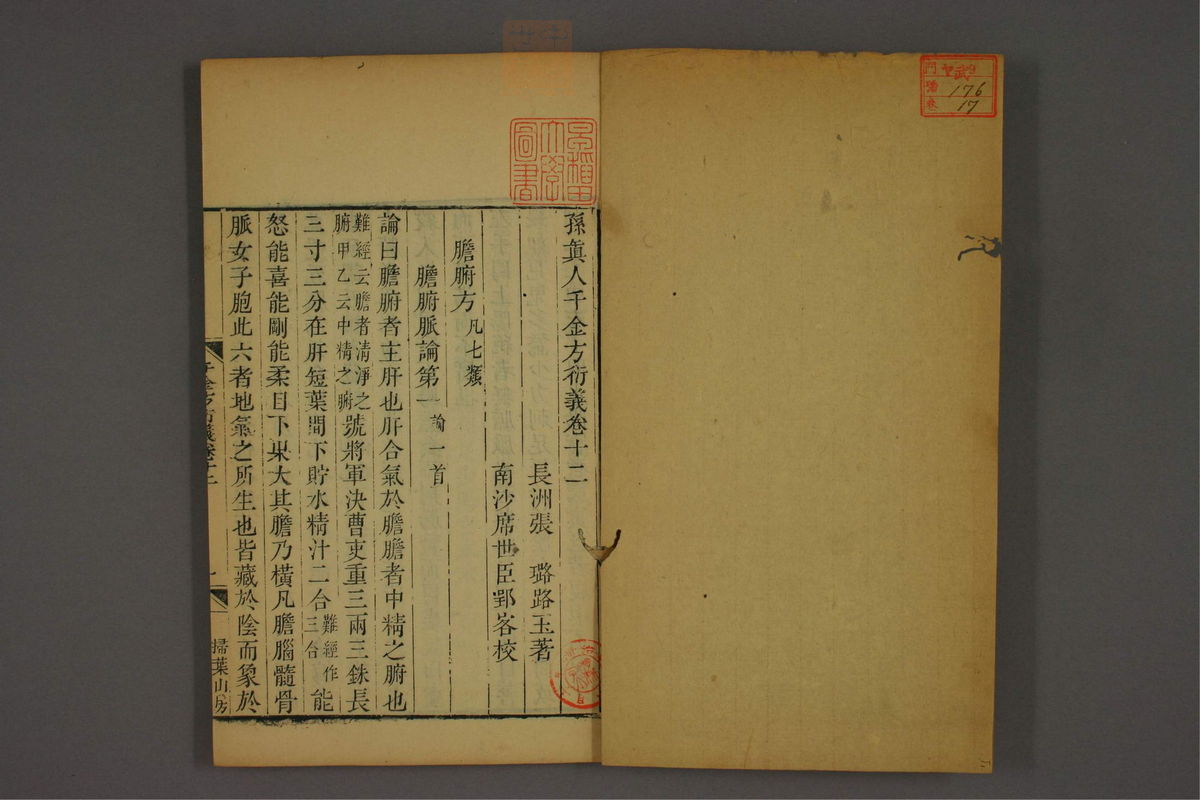 孫眞人千金方衍義卷十二
長洲張　璐路玉著
南沙席世臣郢峇校
膽腑方凡七類
膽腑脈論第一論一首
論曰膽腑者主肝也肝合氣於膽膽者中精之腑也
難經云膽者淸淨之腑甲乙云中精之腑號將軍決曹吏重三兩三銖長
三寸三分在肝短葉間下貯水精汁二合難經作三合能
怒能喜能剛能柔目下果大其膽乃橫凡膽腦髓骨
脈女子胞此六者地氣之所生也皆藏於陰而象於
千金方衍義卷十二
一
掃葉山房
早稲田大學圖書
門
號 176
卷 17